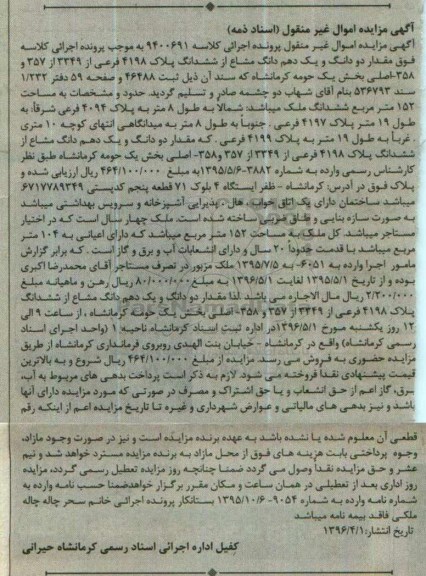 آگهی مزایده اموال غیر منقول (اسناد ذمه)
آگهی مزایده اموال غیر منقول پرونده اجرائی کلاسه ۹۴۰۰۶۹۱ به موجب پرونده اجرائی کلاسه
فوق مقدار دو دانگ و یک دهم دانگ مشاع از ششدانگ پلاک ۴۱۹۸ فرعی از ۳۳۴۹ از ۳۵۷ و
۳۵۸-اصلی بخش یک حومه کرمانشاه که سند آن ذیل ثبت ۴۶۴۸۸ و صفحه ۵۹ دفتر ۱/۲۳۳
سند ۵۳۶۷۹۳ بنام آقای شهاب دو چشمه صادر و تسلیم گردید. حدود و مشخصات به مساحت
۱۵۲ متر مربع ششدانگ ملک میباشد: شمالاً به طول ۸ متر به پلاک ۴۰۹۴ فرعی شرقاً: به
طول ۱۹ متر پلاک ۴۱۹۷ فرعی . جنوباً به طول ۸ متر به میدانگاهی انتهای کوچه ۱۰ متری
. غرباً به طول ۱۹ متر به پلاک ۴۱۹۹ فرعی . که مقدار دو دانگ و یک دهم دانگ مشاع از
ششدانگ پلاک ۴۱۹۸ فرعی از ۳۳۴۹ از ۳۵۷ و۳۵۸- اصلی بخش یک حومه کرمانشاه طبق نظر
کارشناس رسمی وارده به شماره ۳۸۸۲-۱۳۹۵/۵/۶به مبلغ ۴۶۴/۱۰۰/۰۰۰ ریال ارزیابی شده و
پلاک فوق در آدرس: کرمانشاه - ظفر ایستگاه ۴ بلوک ۷۱ قطعه پنجم کدپستی ۶۷۱۷۷۸۹۳۴۹
میباشد ساختمان دارای یک اتاق خواب، هال، پذیرایی آشپزخانه و سرویس بهداشتی میباشد
به صورت سازه بنایی و طاق ضربی ساخته شده است. ملک چهار سال است که در اختیار
مستاجر میباشد. کل ملک به مساحت ۱۵۲ متر مربع میباشد که دارای اعیانی به ۱۰۴ متر
مربع میباشد با قدمت حدوداً ۲۰ سال و دارای انشعابات آب و برق و گاز است . که برابر گزارش
مامور اجرا وارده به ۶۰۵۱- به ۱۳۹۵/۷/۵ ملک مزبور در تصرف مستاجر آقای محمدرضا اکبری
بوده و از تاریخ ۱۳۹۵/۵/۱ لغایت ۱۳۹۶/۵/۱ به مبلغ ۸۰/۰۰۰/۰۰۰ ریال رهن و ماهیانه مبلغ
۲/۲۰۰/۰۰۰ ریال مال الاجاره می باشد .لذا مقدار دو دانگ و یک دهم دانگ مشاع از ششدانگ
پلاک ۴۱۹۸ فرعی از ۳۳۴۹ از ۳۵۷ و ۳۵۸- اصلی بخش یک حومه کرمانشاه ، از ساعت ۹ الی
۱۲ روز یکشنبه مورخ ۱۳۹۶/۵/۱در اداره ثبت اسناد کرمانشاه ناحیه ۱ (واحد اجرای اسناد
رسمی کرمانشاه) واقع در کرمانشاه - خیابان بنت الهدی روبروی فرمانداری کرمانشاه از طریق
مزایده حضوری به فروش می رسد. مزایده از مبلغ ۴۶۴/۱۰۰/۰۰۰ ریال شروع و به بالاترین
قیمت پیشنهادی نقداً فروخته می شود. لازم به ذکر است پرداخت بدهی های مربوط به آب،
برق، گاز اعم از حق انشعاب و یا حق اشتراک و مصرف در صورتی که مورد مزایده دارای آنها
باشد و نیز بدهی های مالیاتی و عوارض شهرداری و غیره تا تاریخ مزایده اعم از اینکه رقم
قطعی آن معلوم شده یا نشده باشد به عهده برنده مزایده است و نیز در صورت وجود مازاد،
وجوه پرداختی بابت هزینه های فوق از محل مازاد به برنده مزایده مسترد خواهد شد و نیم
عشر و حق مزایده نقداً وصول می گردد ضمناً چنانچه روز مزایده تعطیل رسمی گردد، مزایده
روز اداری بعد از تعطیلی در همان ساعت و مکان مقرر برگزار خواهدشدضمنا حسب نامه وارده به
شماره نامه وارده به شماره ۹۰۵۴-۱۳۹۵/۱۰/۶ بستانکار پرونده اجرائی خانم سحر چاله چاله
ملکی فاقد بیمه نامه میباشد
تاریخ انتشار:۱۳۹۶/۴/۱
کفیل اداره اجرائی اسناد رسمی کرمانشاه حیرانی